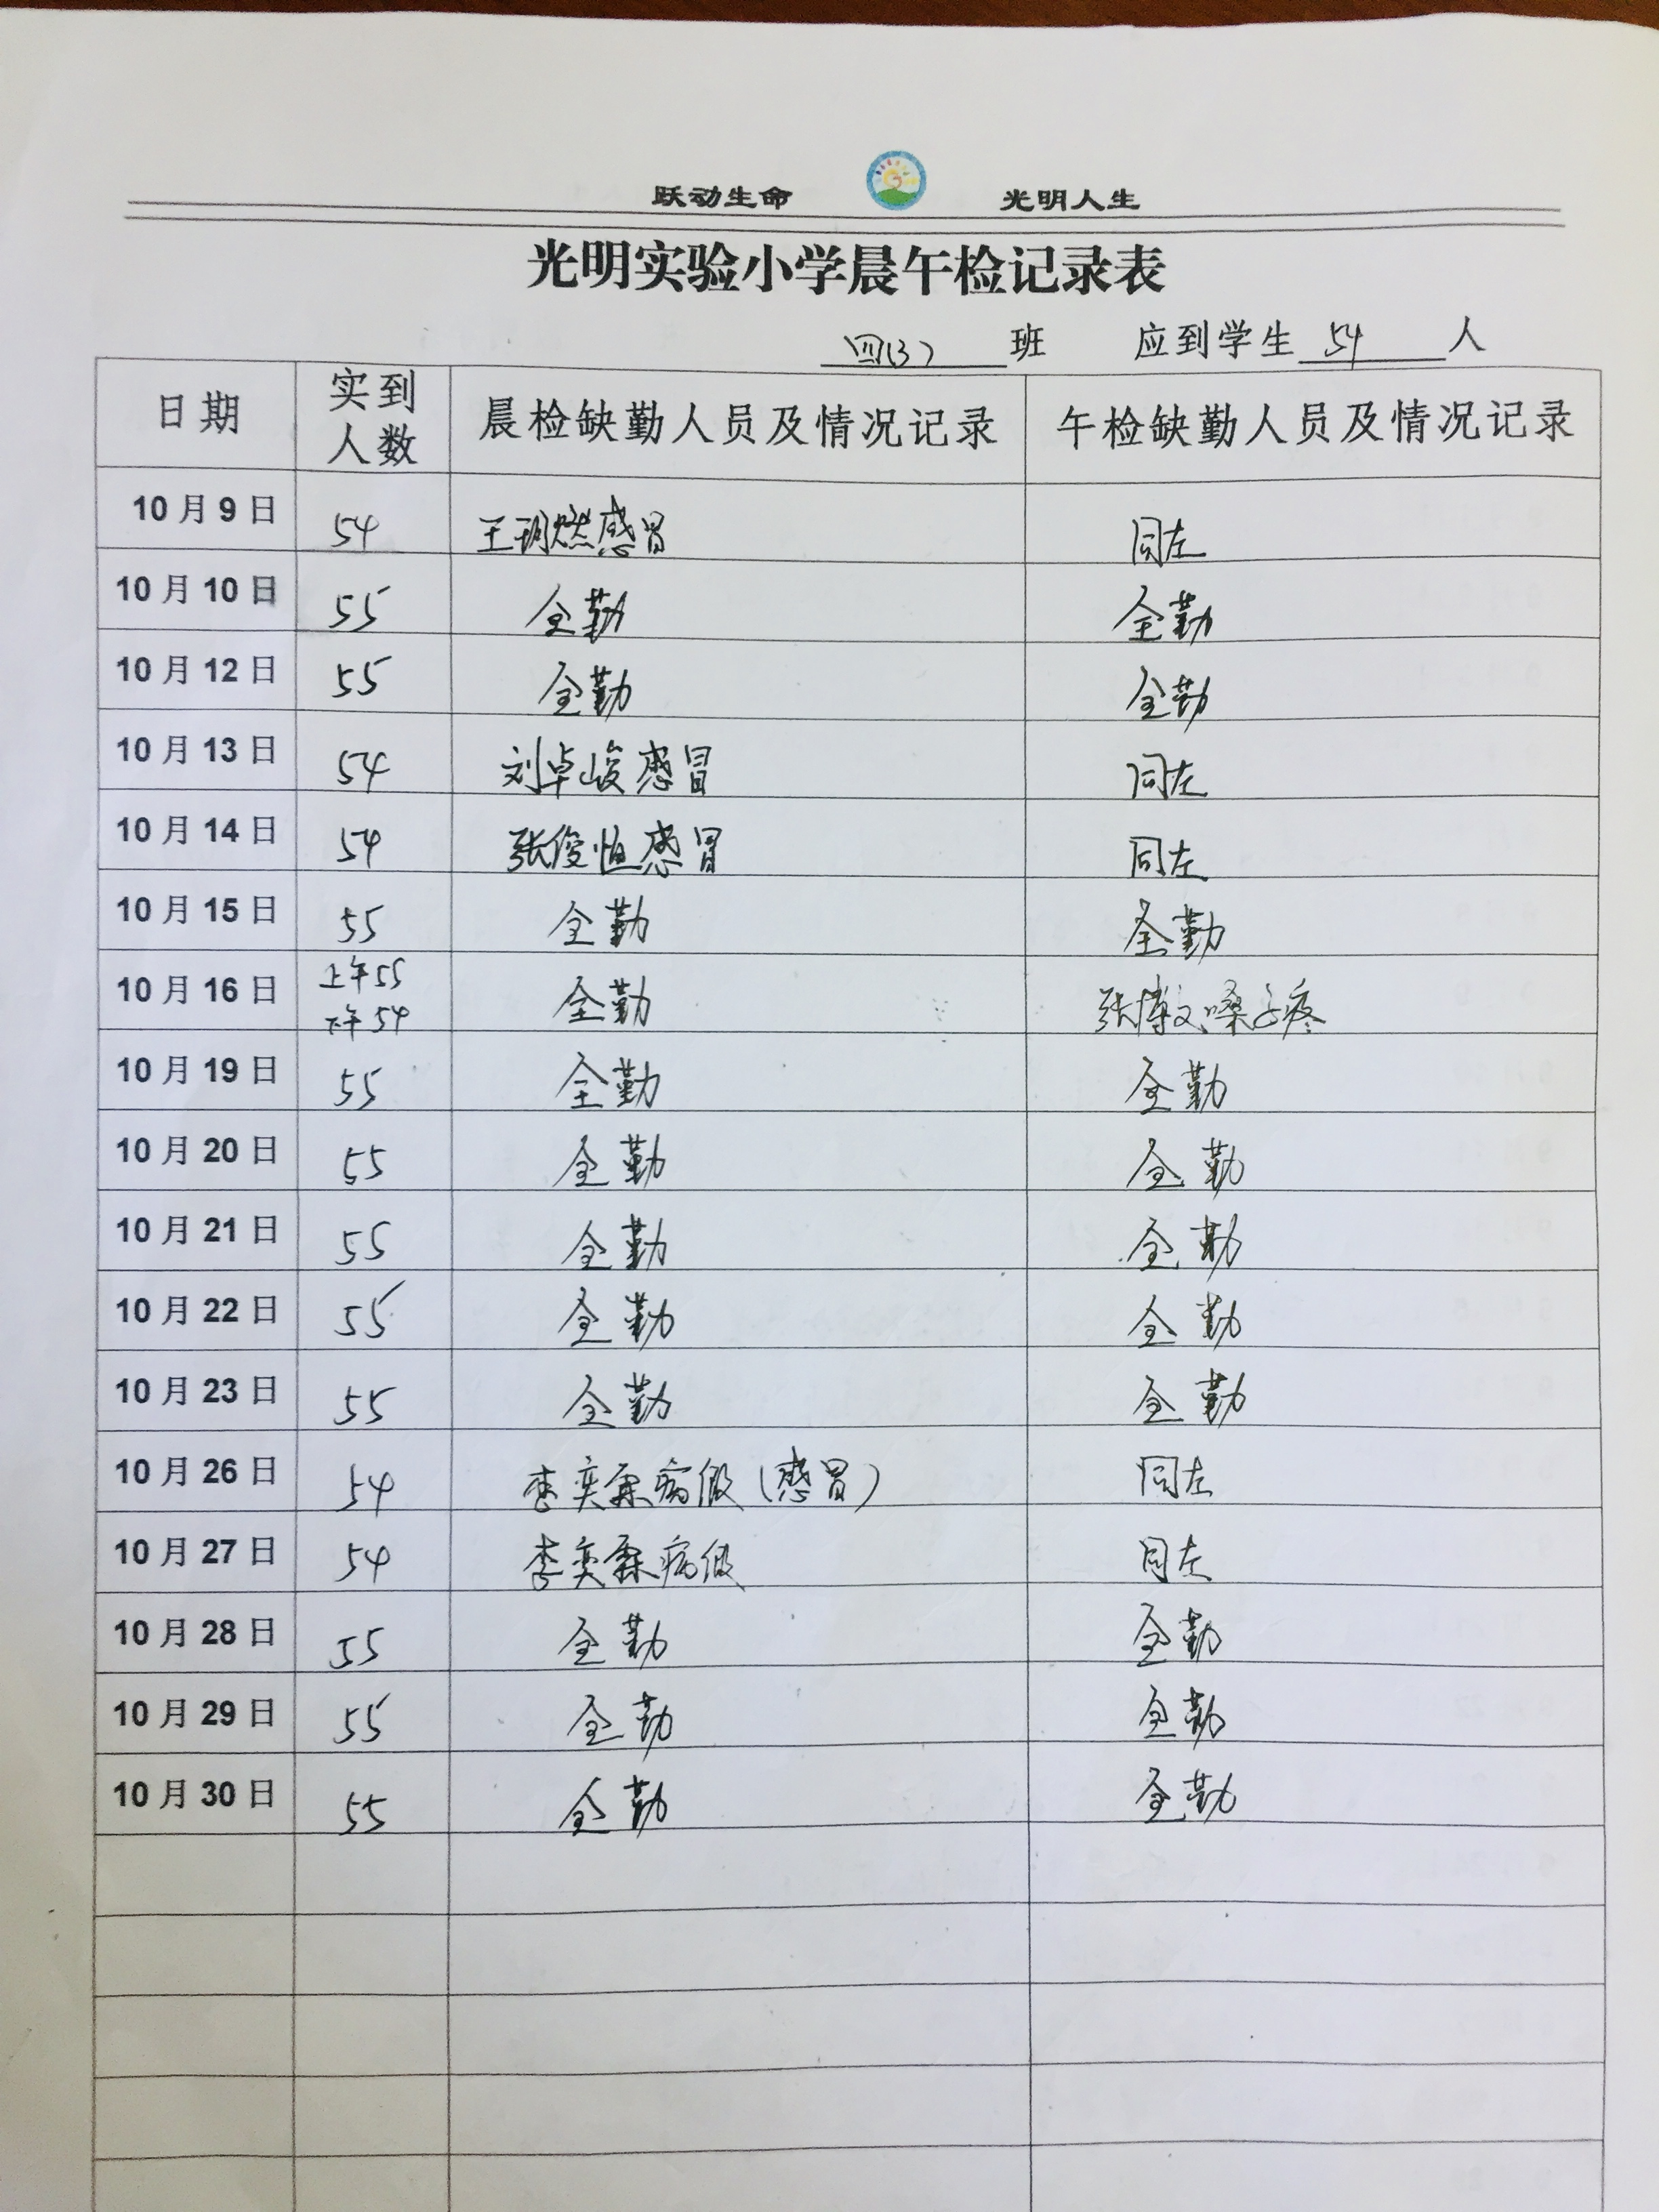 跃动生命 光明人生
光明实验小学晨午检记录表
四(3) 班 应到学生 54 人
日期 实到人数 晨检缺勤人员及情况记录 午检缺勤人员及情况记录
10月9日 54 王玥燃感冒 同左
10月10日 55 全勤 全勤
10月12日 55 全勤 全勤
10月13日 54 刘卓峻感冒 同左
10月14日 54 张俊恒感冒 同左
10月15日 55 全勤 全勤
10月16日 上午55 下午54 全勤 张博文嗓子疼
10月19日 55 全勤 全勤
10月20日 55 全勤 全勤
10月21日 55 全勤 全勤
10月22日 55 全勤 全勤
10月23日 55 全勤 全勤
10月26日 54 李奕霖病假(感冒) 同左
10月27日 54 李奕霖病假 同左
10月28日 55 全勤 全勤
10月29日 55 全勤 全勤
10月30日 55 全勤 全勤